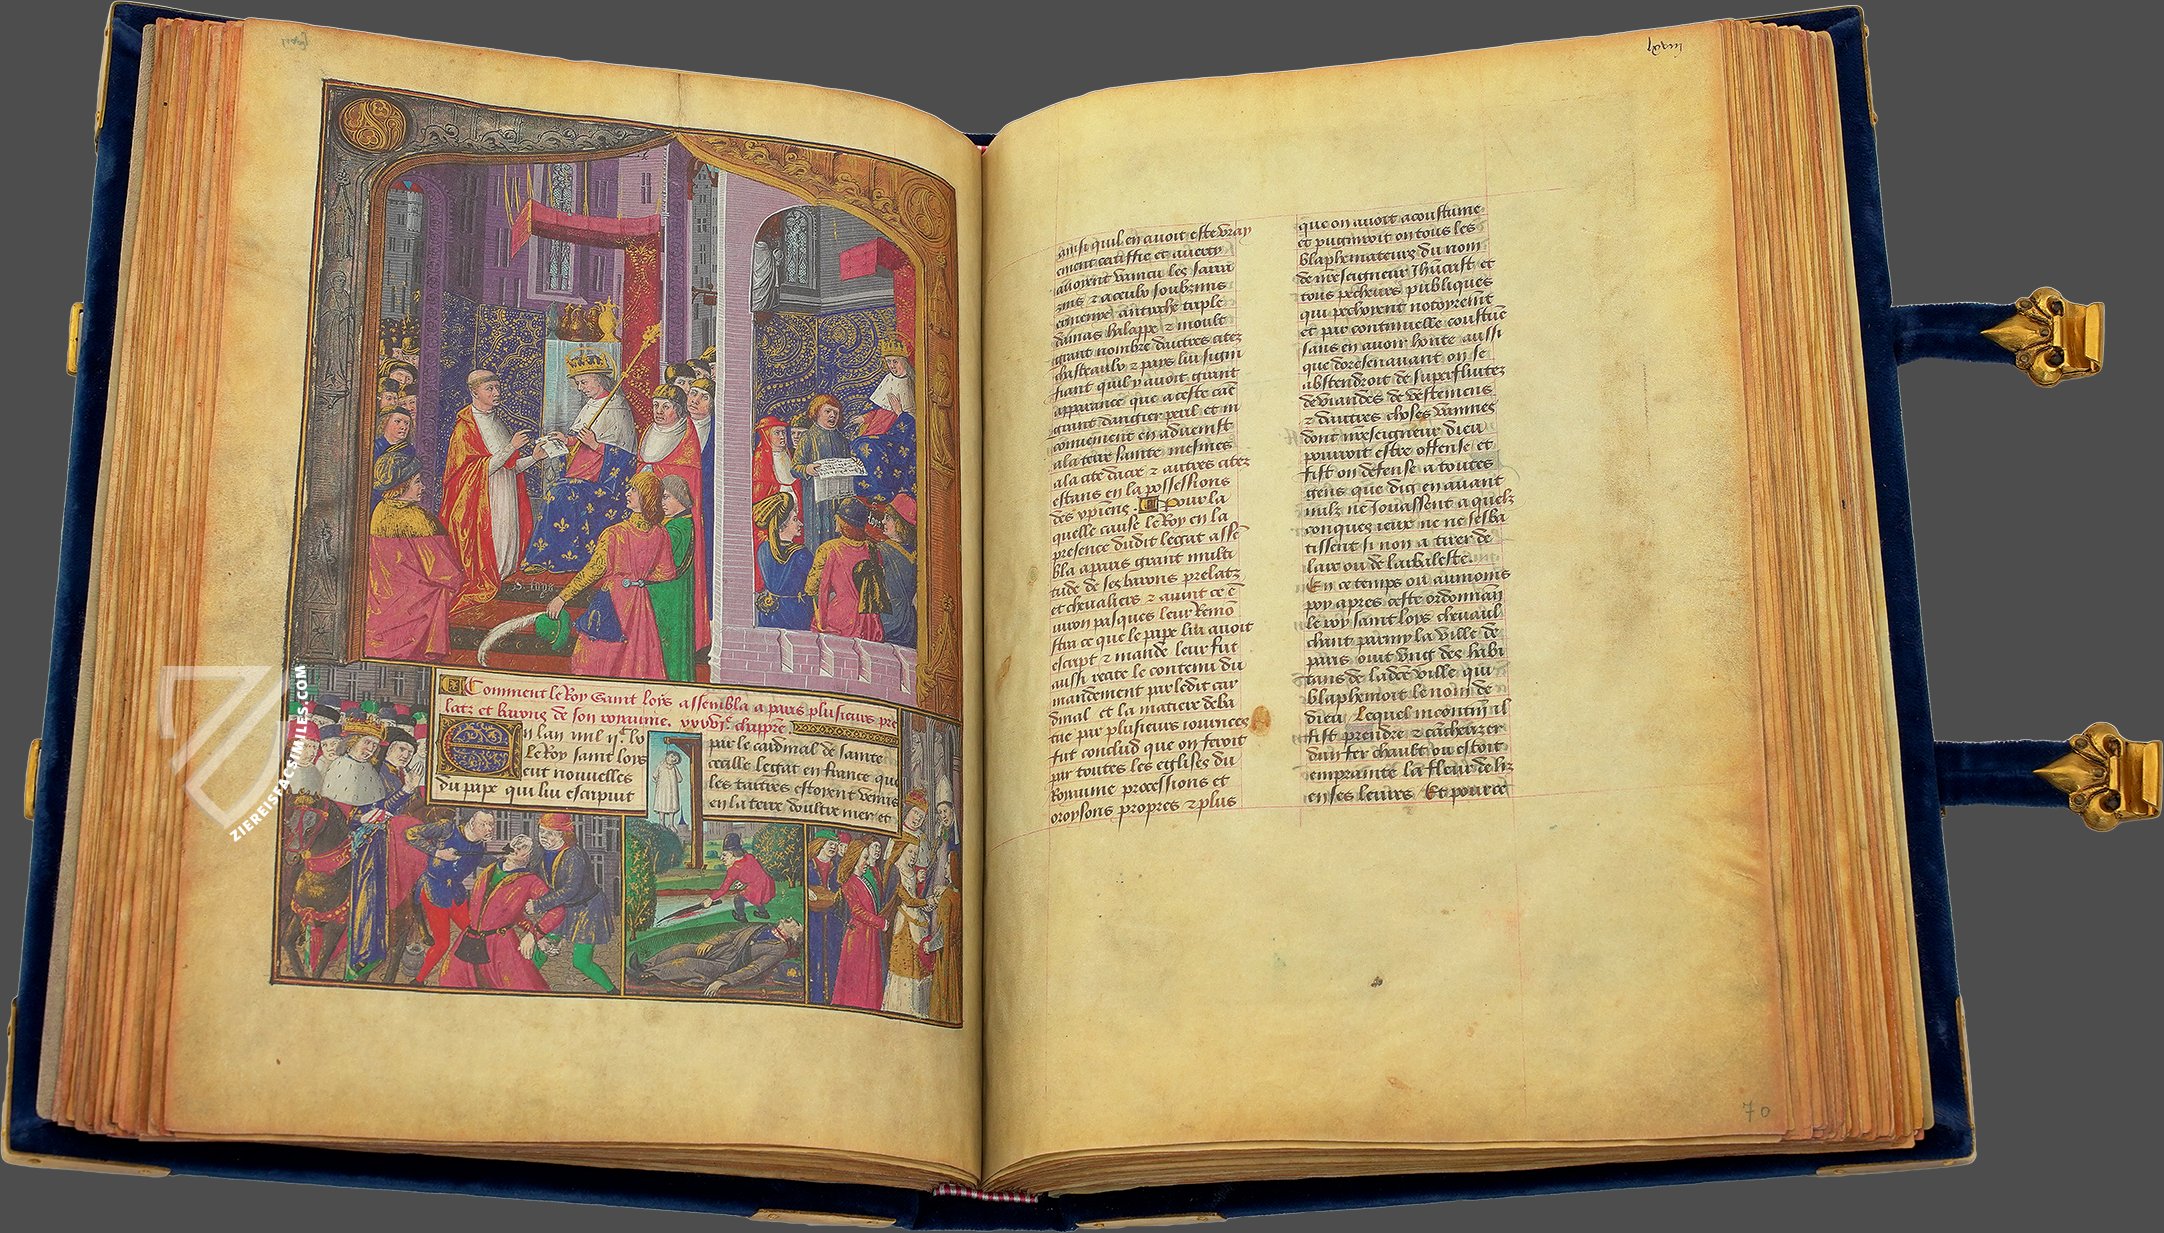 S. loys
Comment le Roy Saint loys assembla a paris plusieurs pre
latz et barons de son royaume. chappre
En lan mil
le Roy saint loys
eut nouvelles
du pape qui luy escripuit
par le cardinal de sainte
cecille legat en france que
les tartres estoyent venus
en la terre doultre mer et
lxviii
ainsi quil en avoit este vray
ement certiffie et
avoyent vaincu les sarra
zins
damas halappe et moult
grant nombre dautres citez
chasteaulx et pays luy signi
fiant quil y avoit grant
apparance que a ceste cause
grant dangier peril et in
convenient en advenist
a la terre sainte mesmes
a la cite dacre et autres citez
estans en la possessions
des xpiens. Pour la
quelle cause le Roy en la
presence dudit legat asse
bla a paris grant multi
tude de ses barons prelatz
et chevaliers
viron pasques leur remo
stra ce que le pape luy avoit
escript et mande leur fut
aussi recite le contenu du
mandement par ledit car
dinal et la matiere deba
tue par plusieurs iournees
fut conclud que on feroit
par toutes les eglises du
Royaume processions et
oroysons propres et plus
que on avoit acoustume
et pugniroit on tous les
blaphemateurs du nom
de nreseigneur Jhucrist et
tous pecheurs publiques
qui pechoyent notoyremt
et par continuelle coustue
sans en avoir honte aussi
que doresenavant on se
abstendroit de superfluitez
de viandes de vestemens
et dautres choses vaynnes
dont nreseigneur dieu
pourroit estre offense et
fist on defense a toutes
gens que dig en avant
nulz ne jouassent a quelz
conques ieux ne ne sesba
tissent si non a tirer de
larc ou de larbaleste.
En ce temps ou aumoins
poy apres ceste ordonnan
le roy saint loys chevaul
chant parmy la ville de
paris ouit ung des habi
tans de ladce ville qui
blaphemoit le nom de
dieu Lequel incontinit il
fist prendre et cacheterer
dun fer chault ou estoit
emprainte la fleur de liz
en ses leuvres Et pource
70
ZIEREISFACSIMILES.COM